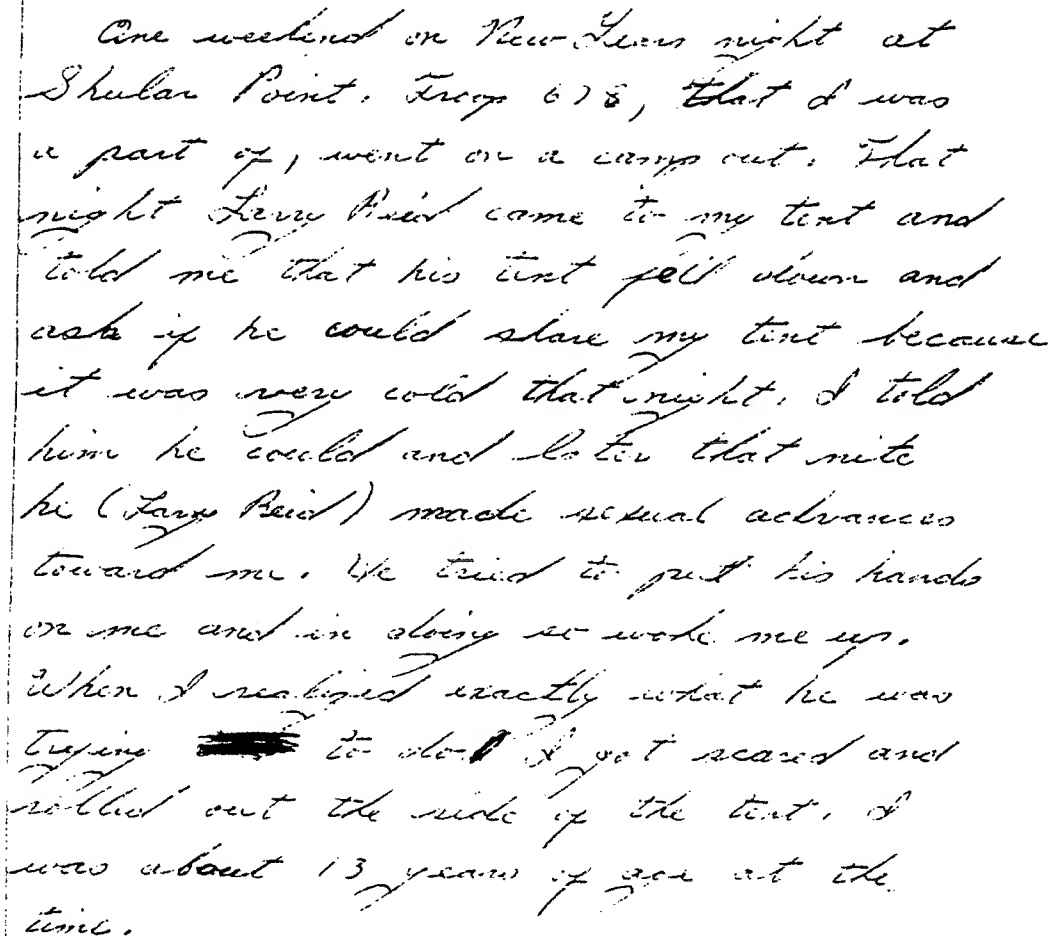 One weekend on New Years night at
Shular Point. Troop 678, that I was
a part of, went on a camp out. That
night Larry Reid came to my tent and
told me that his tent fell down and
ask if he could share my tent because
it was very cold that night. I told
him he could and later that nite
he (Larry Reid) made sexual advances
toward me. He tried to put his hands
on me and in doing so woke me up.
When I realized exactly what he was
trying to do I got scared and
rolled out the side of the tent. I
was about 13 years of age at the
time.